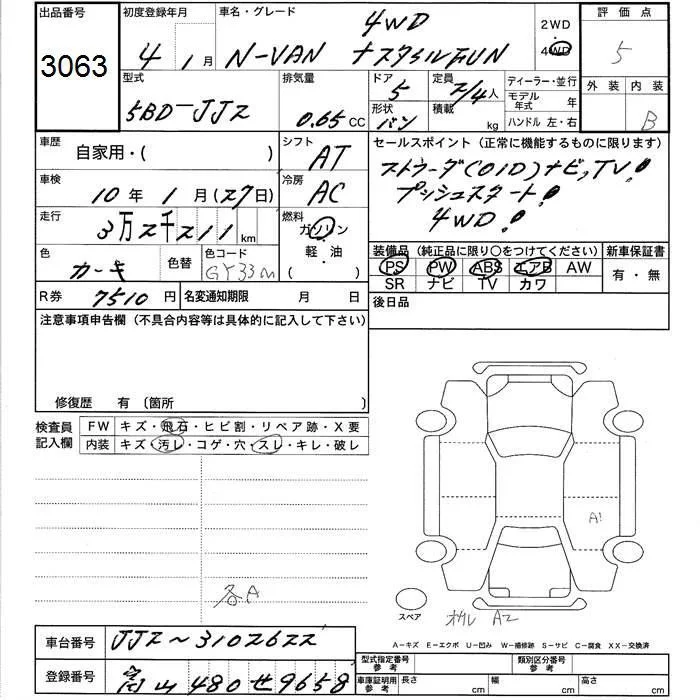 出品番号 3063
初度登録年月 4年 1月
車名・グレード 4WD N-VAN +スタイルFUN
2WD 4WD
評価点 5
外装 内装 B
型式 5BD-JJ2
排気量 0.65 CC
ドア 5 形状 バン
定員 2/4人 積載 kg
ディーラー・並行
モデル年式 年
ハンドル 左・右
車歴 自家用・( )
シフト AT
車検 10年 1月 (27日)
冷房 AC
走行 3万2千211 km
燃料 ガソリン 軽・油 ( )
色 カーキ 色替
色コード GY33M
R券 7510円
名変通知期限 月 日
セールスポイント (正常に機能するものに限ります)
ストラーダ(01D)ナビ, TV!
プッシュスタート!
4WD!
装備品 (純正品に限り〇をつけてください) 新車保証書
PS PW ABS エアB AW 有・無
SR ナビ TV カワ
後日品
注意事項申告欄 (不具合内容等は具体的に記入して下さい)
修復歴 有 〔箇所 〕
検査員記入欄
FW キズ・飛石・ヒビ割・リペア跡・X要
内装 キズ・汚レ・コゲ・穴・スレ・キレ・破レ
各A
A1
スペア
A2
A-キズ E-エクボ U-凹み W-補修跡 S-サビ C-腐食 XX-交換済
車台番号 JJ2~3102622
登録番号 富山 480 せ 9658
型式指定番号 参考
類別区分番号 参考
車庫証明用 参考 長さ cm 幅 cm 高さ cm